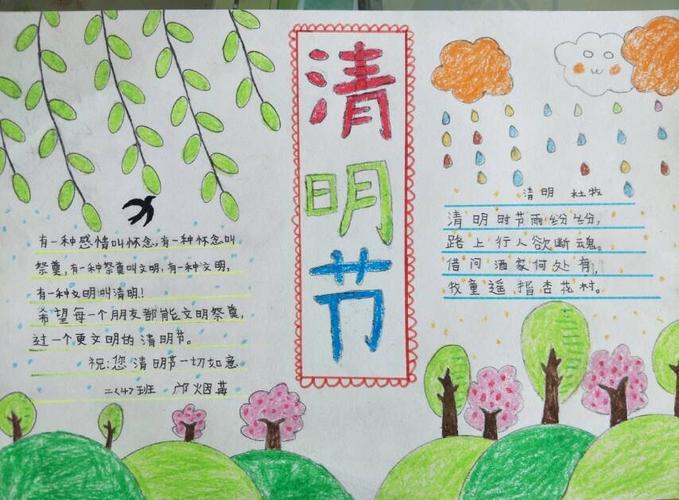 清明节
有一种感情叫怀念,有一种怀念叫
祭奠,有一种祭奠叫文明,有一种文明,
有一种文明叫清明!
希望每一个朋友都能文明祭奠,
过一个更文明的清明节。
祝:您清明节一切如意
二<4>班
清明 杜牧
清明时节雨纷纷,
路上行人欲断魂。
借问酒家何处有,
牧童遥指杏花村。